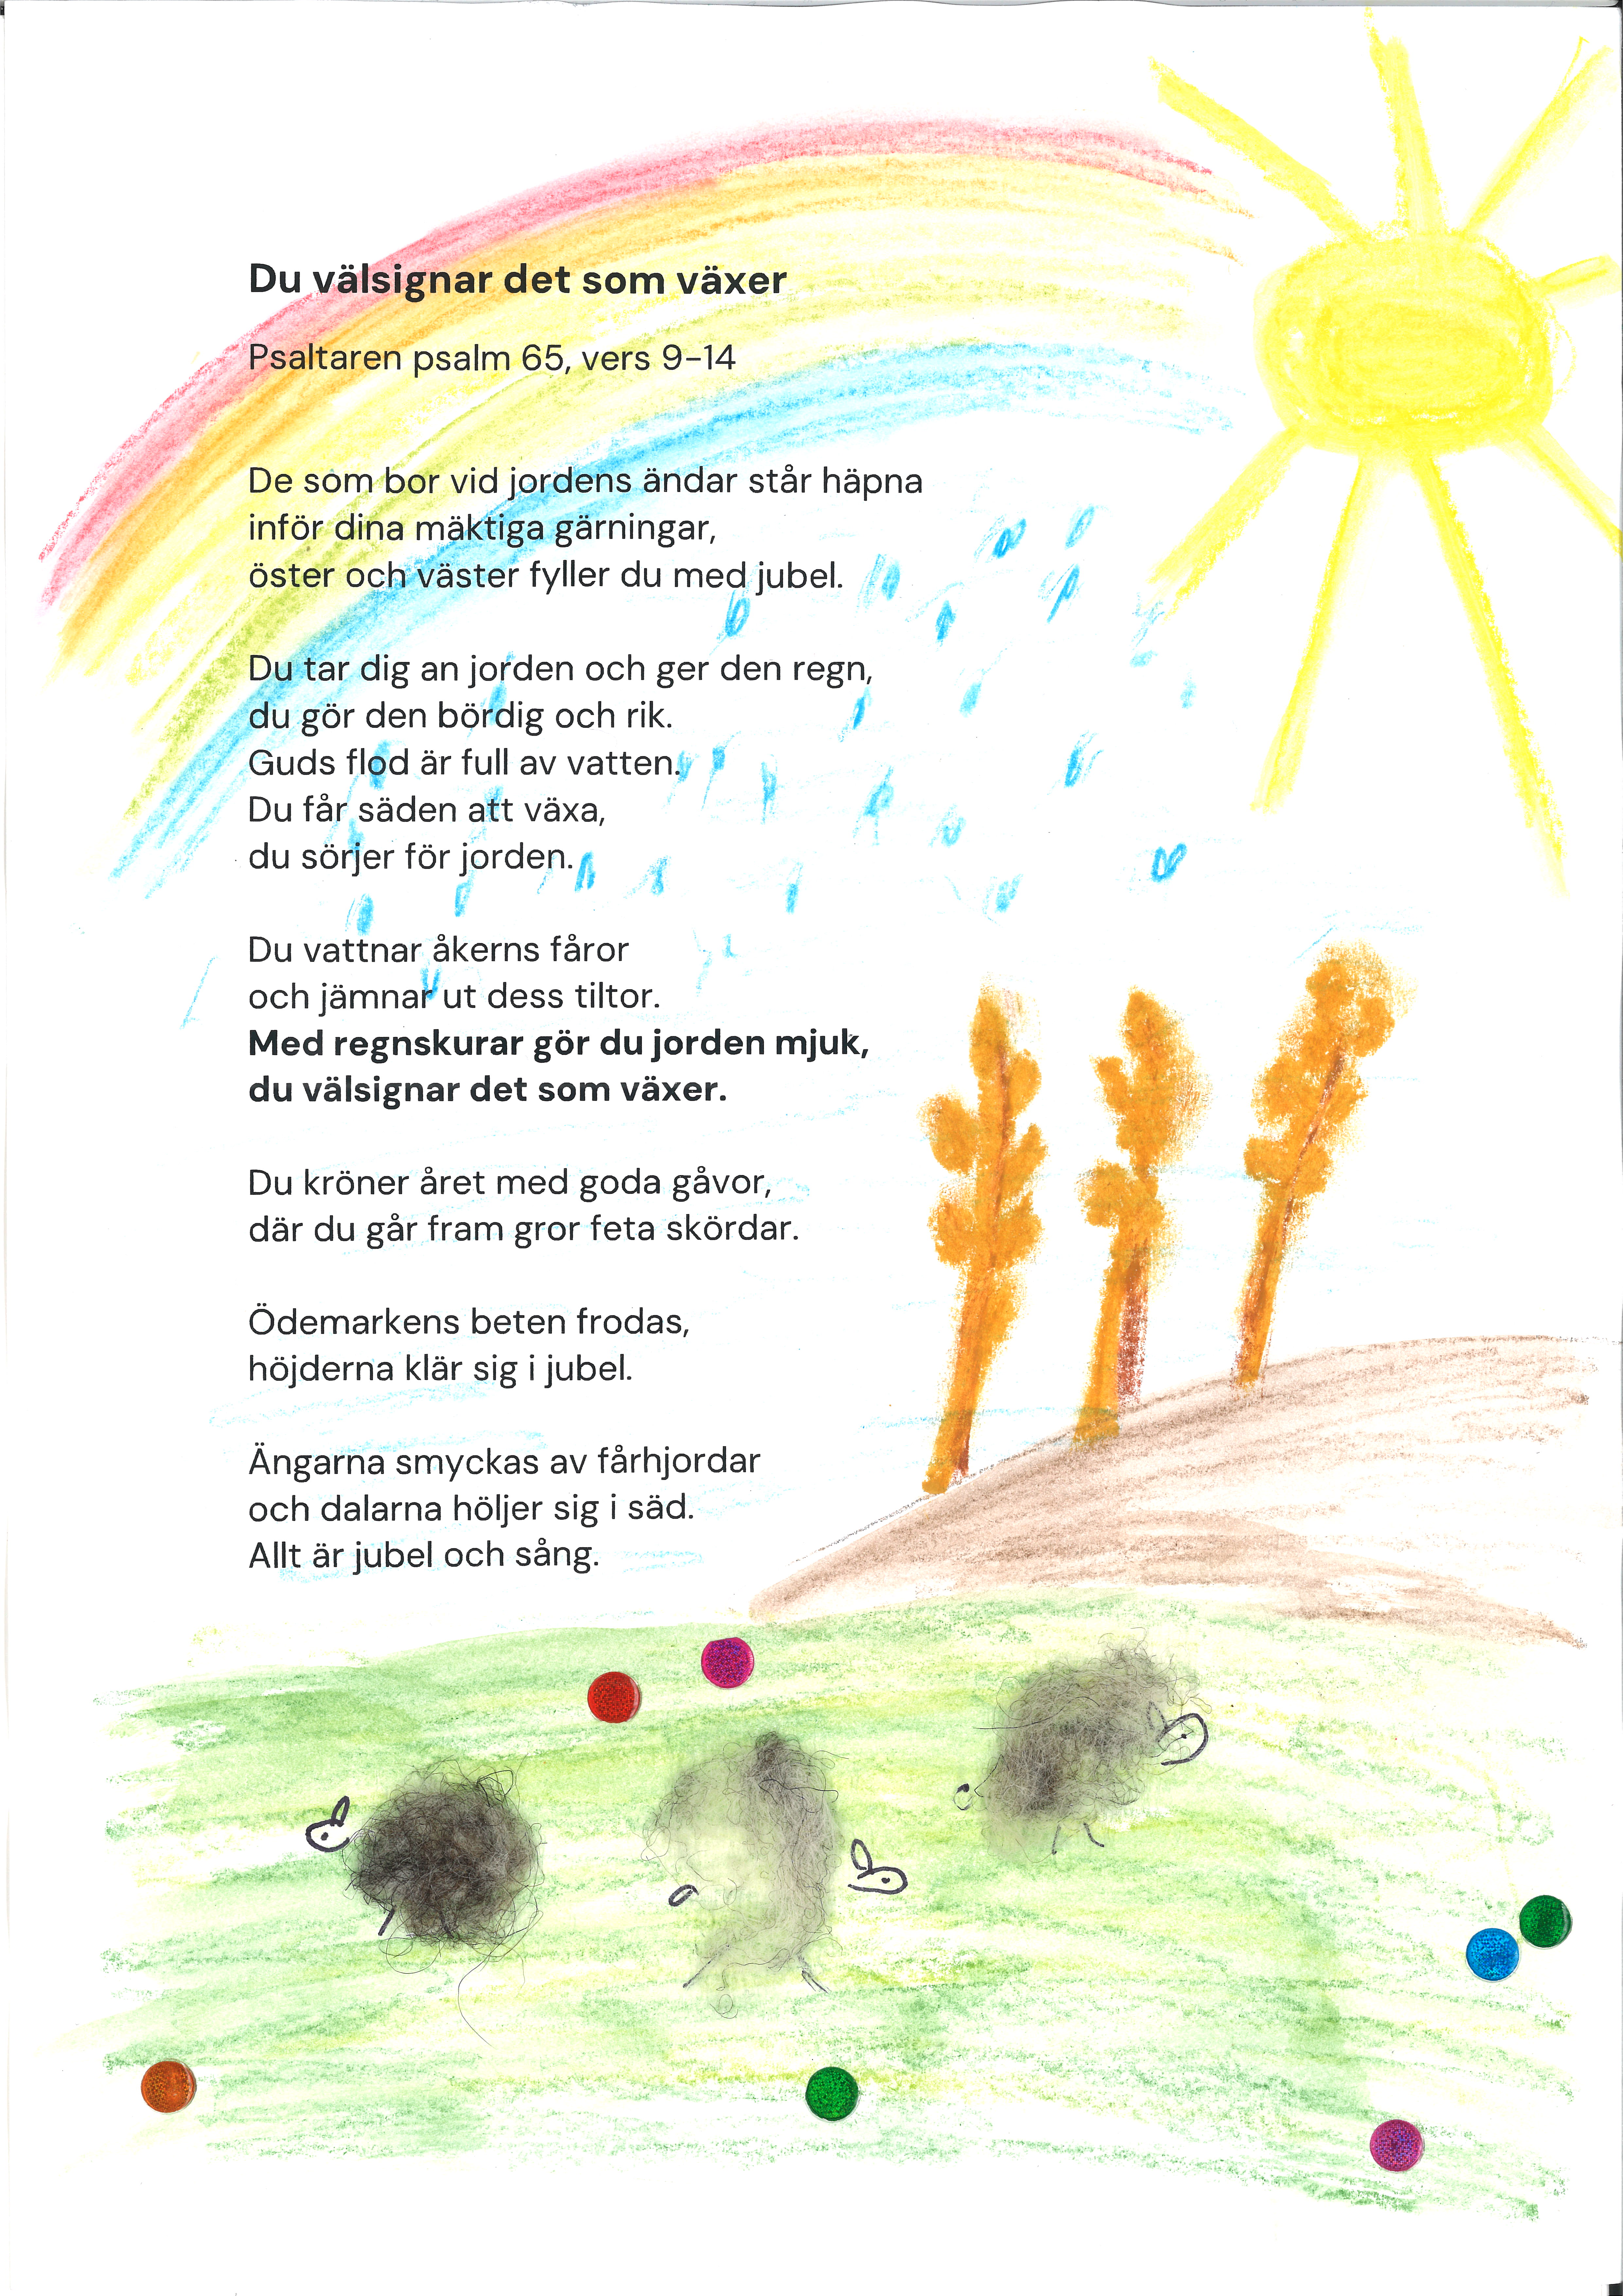 Du välsignar det som växer
Psaltaren psalm 65, vers 9–14
De som bor vid jordens ändar står häpna
inför dina mäktiga gärningar,
öster och väster fyller du med jubel.
Du tar dig an jorden och ger den regn,
du gör den bördig och rik.
Guds flod är full av vatten.
Du får säden att växa,
du sörjer för jorden.
Du vattnar åkerns fåror
och jämnar ut dess tiltor.
Med regnskurar gör du jorden mjuk,
du välsignar det som växer.
Du kröner året med goda gåvor,
där du går fram gror feta skördar.
Ödemarkens beten frodas,
höjderna klär sig i jubel.
Ängarna smyckas av fårhjordar
och dalarna höljer sig i säd.
Allt är jubel och sång.